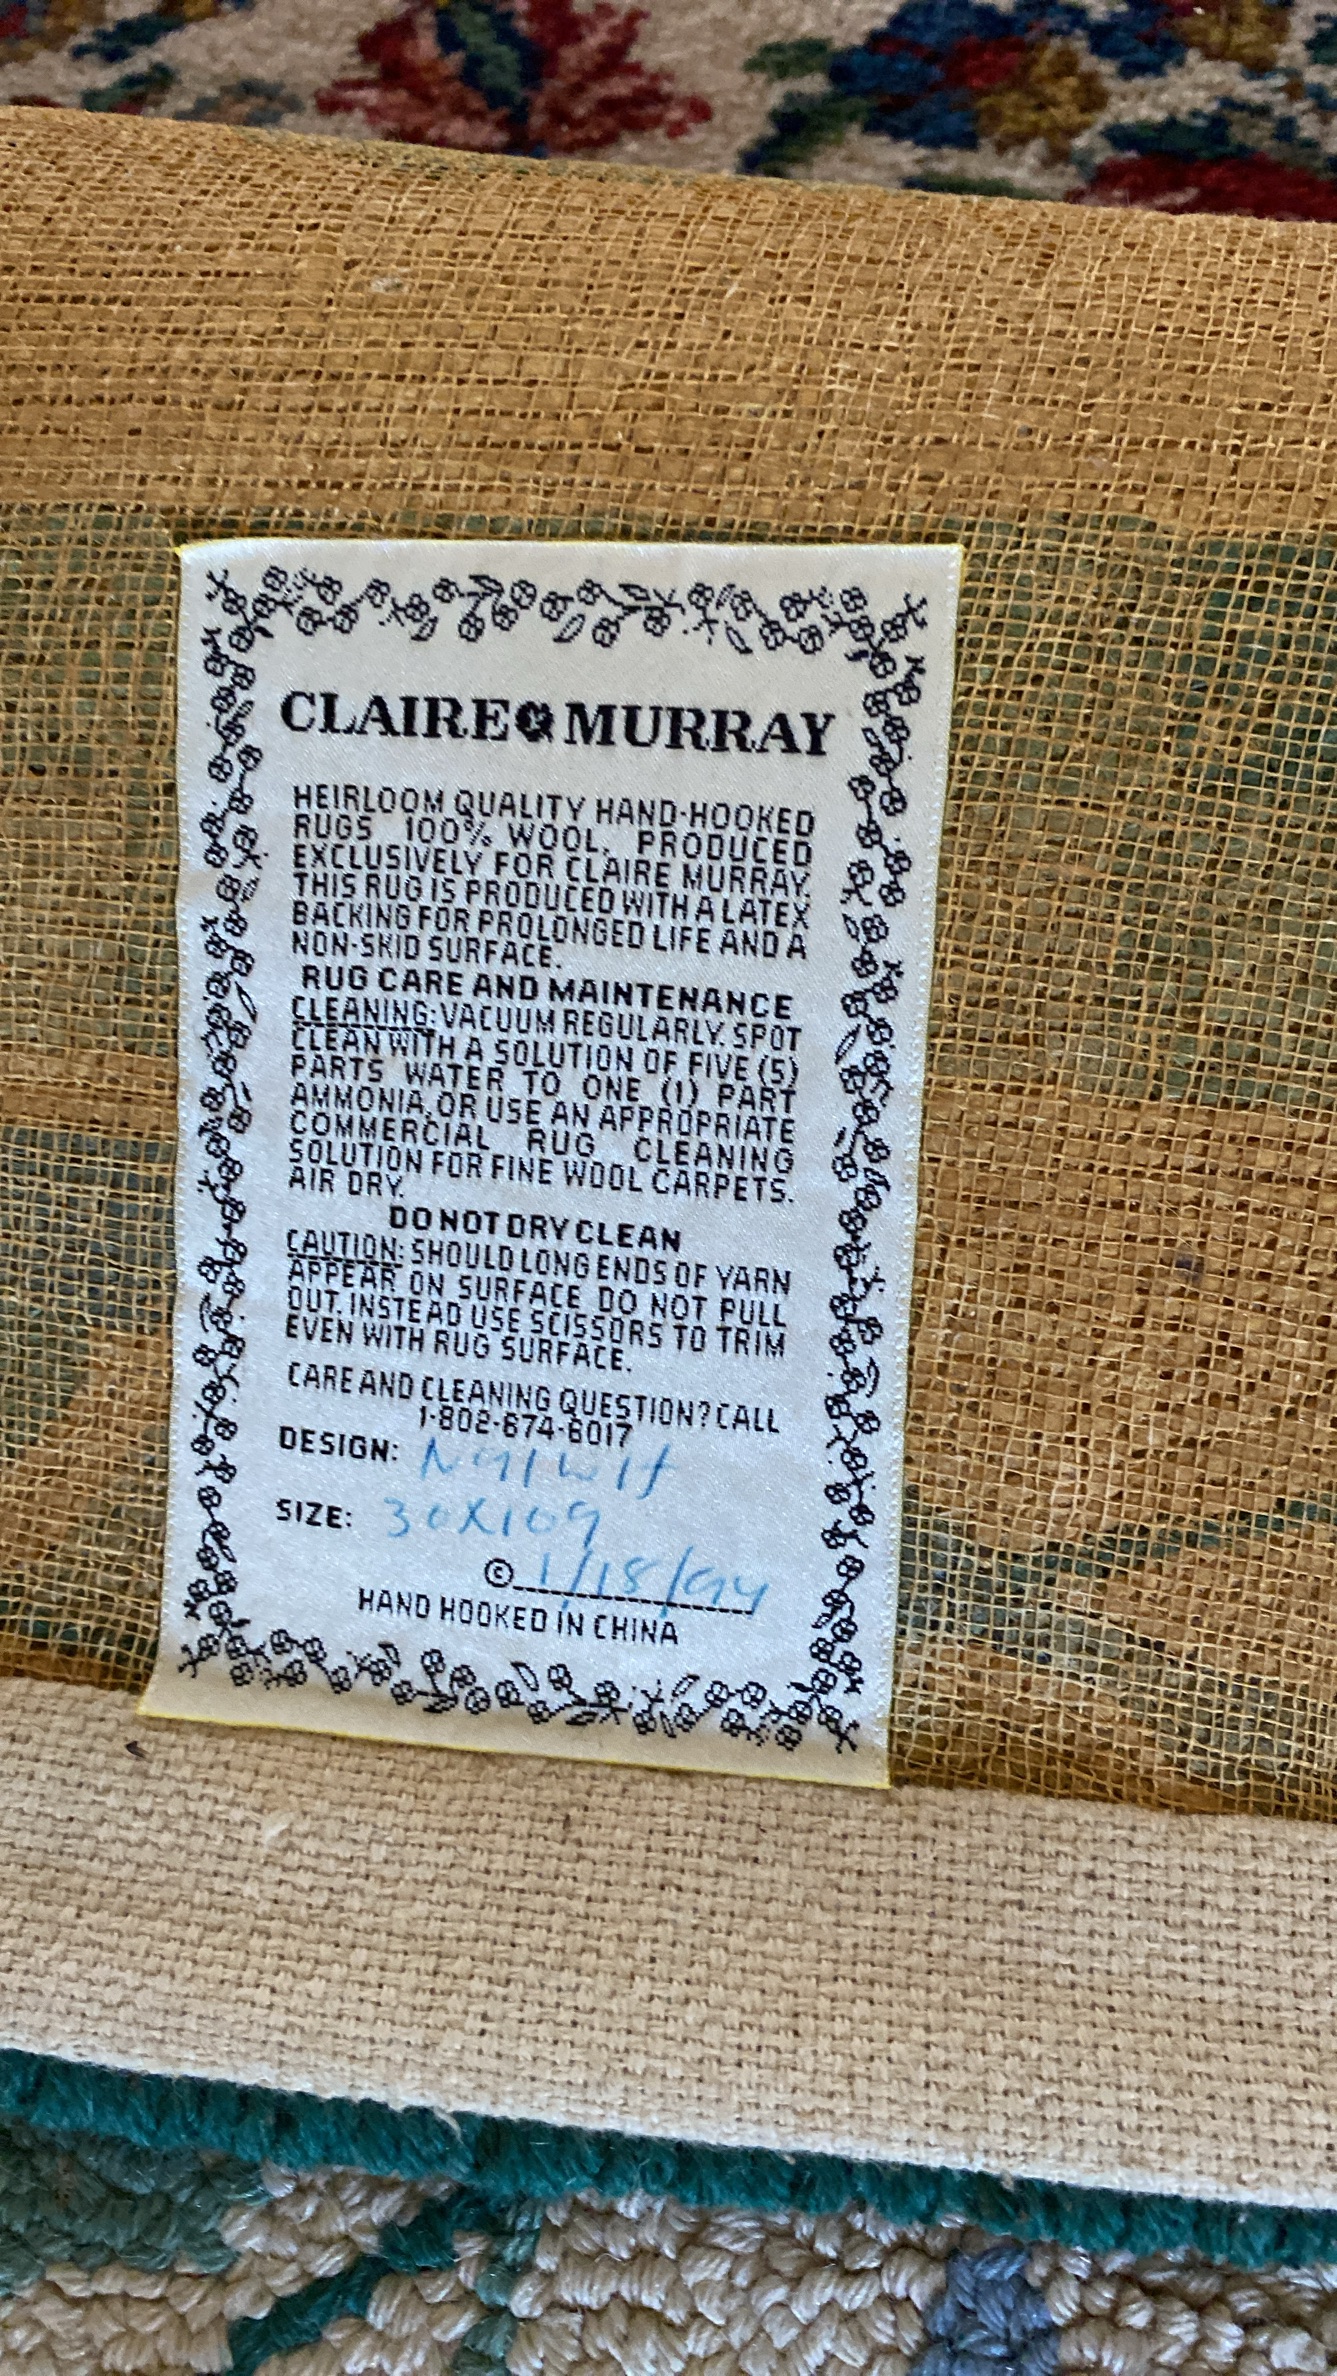 CLAIRE MURRAY
HEIRLOOM QUALITY HAND-HOOKED
RUGS 100% WOOL. PRODUCED
EXCLUSIVELY FOR CLAIRE MURRAY.
THIS RUG IS PRODUCED WITH A LATEX
BACKING FOR PROLONGED LIFE AND A
NON-SKID SURFACE.
RUG CARE AND MAINTENANCE
CLEANING: VACUUM REGULARLY. SPOT
CLEAN WITH A SOLUTION OF FIVE (5)
PARTS WATER TO ONE (1) PART
AMMONIA, OR USE AN APPROPRIATE
COMMERCIAL RUG CLEANING
SOLUTION FOR FINE WOOL CARPETS.
AIR DRY.
DO NOT DRY CLEAN
CAUTION: SHOULD LONG ENDS OF YARN
APPEAR ON SURFACE DO NOT PULL
OUT. INSTEAD USE SCISSORS TO TRIM
EVEN WITH RUG SURFACE.
CARE AND CLEANING QUESTION? CALL
1-802-674-6017
DESIGN:
SIZE: 30X109
© 1/18/94
HAND HOOKED IN CHINA